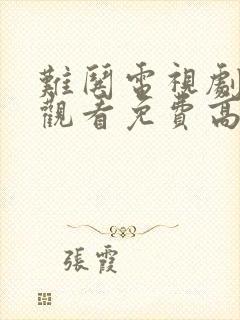 難閱電視劇
觀看免費高
張霞